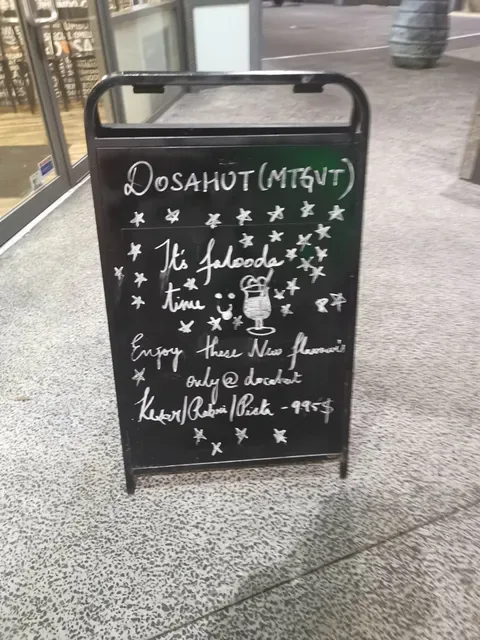 DOSAHUT (MTGVT)
It's falooda
time
Enjoy these New flavour's
only @ dosahut
Kesar/Rabri/Pista - 9.95$